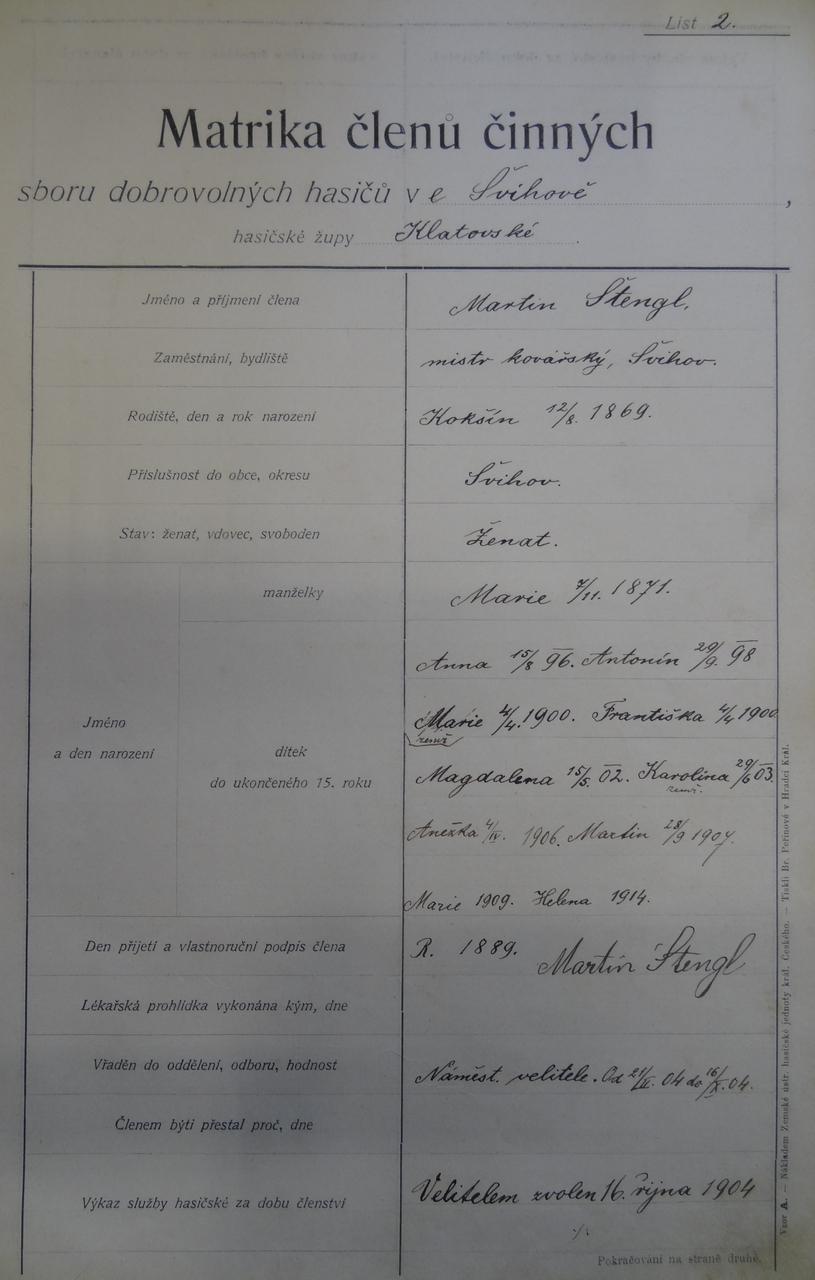 List 2.
Matrika členů činných
sboru dobrovolných hasičů v e Švihově,
hasičské župy Klatovské.
Jméno a příjmení člena Martin Štengl.
Zaměstnání, bydliště mistr kovářský, Švihov.
Rodiště, den a rok narození Kokšín 12/8. 1869.
Příslušnost do obce, okresu Švihov.
Stav: ženat, vdovec, svoboden Ženat.
Jméno a den narození
manželky Marie 7/11. 1871.
dítek do ukončeného 15. roku
Anna 15/8 96. Antonín 29/9. 98
Marie 4/4. 1900. Františka 4/4 1900
zemř.
Magdalena 15/5. 02. Karolina 29/6 03.
zemř.
Anežka 4/IV. 1906. Martin 28/9 1907.
Marie 1909. Helena 1914.
Den přijetí a vlastnoruční podpis člena R. 1889. Martin Štengl
Lékařská prohlídka vykonána kým, dne
Vřaděn do oddělení, odboru, hodnost Náměst. velitele. Od 21/II. 04 do 16/X. 04.
Členem býti přestal proč, dne
Výkaz služby hasičské za dobu členství Velitelem zvolen 16. října 1904
·/·
Pokračování na straně druhé.
Vzor A. — Nákladem Zemské ústř. hasičské jednoty král. Českého. — Tiskli Br. Peřinové v Hradci Král.